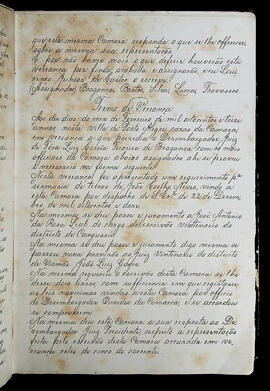 que esta mesma Camara responda o que se lhe offerecer
sobre a mesma sua representação.
E por não haver mais o que deferir houverão esta
vereança por finda, acabada e assignarão, eu Luiz
Rubim de Castro o escrevi
(Assignados) Bragança, Castro, Silva, Lima, Travassos
Termo de Vereança
Aos dez dias do mez de Fevereiro de mil oitocentos e treze
annos nesta villa de Porto Alegre, casas da Camara,
em vereança a que presidio o Desembargador Juiz
de Fora Luiz Corrêa Teixeira de Bragança com os mais
officiais da Camara abaixo assignados ahi se proveu
o necessario na forma seguinte:
Nesta vereança foi apresentado um requerimento pª
sesmaria de terras de João Coelho Neves, vindo a
esta Camara por despacho de S. Exª. de 22 de Dezem
bro de mil oitocentos e doze.
Na mesma, se deu posse e juramento a José Antonio
da Rosa Leal do cargo de escrivão vintenario do
districto de Cangussú.
Na mesma se deu posse e juramento digo mesma se
passou nova provisão ao Juiz Vintenario do districto
de Viamão João Luiz
Na mesma requereu o escrivão desta Camara se lhe
desse dous livros com sufficiencia em que registasse
os tres movimentos vindos a esta Camara por officio
do Desembargador Ouvidor da Comarca, e se accordou
se comprassem.
Na mesma deu esta Camara a sua resposta ao De
zembargador Juiz Presidente, respeito a representação
feita pelo escrivão desta Camara accusada em ve
reança seis do mez do corrente.